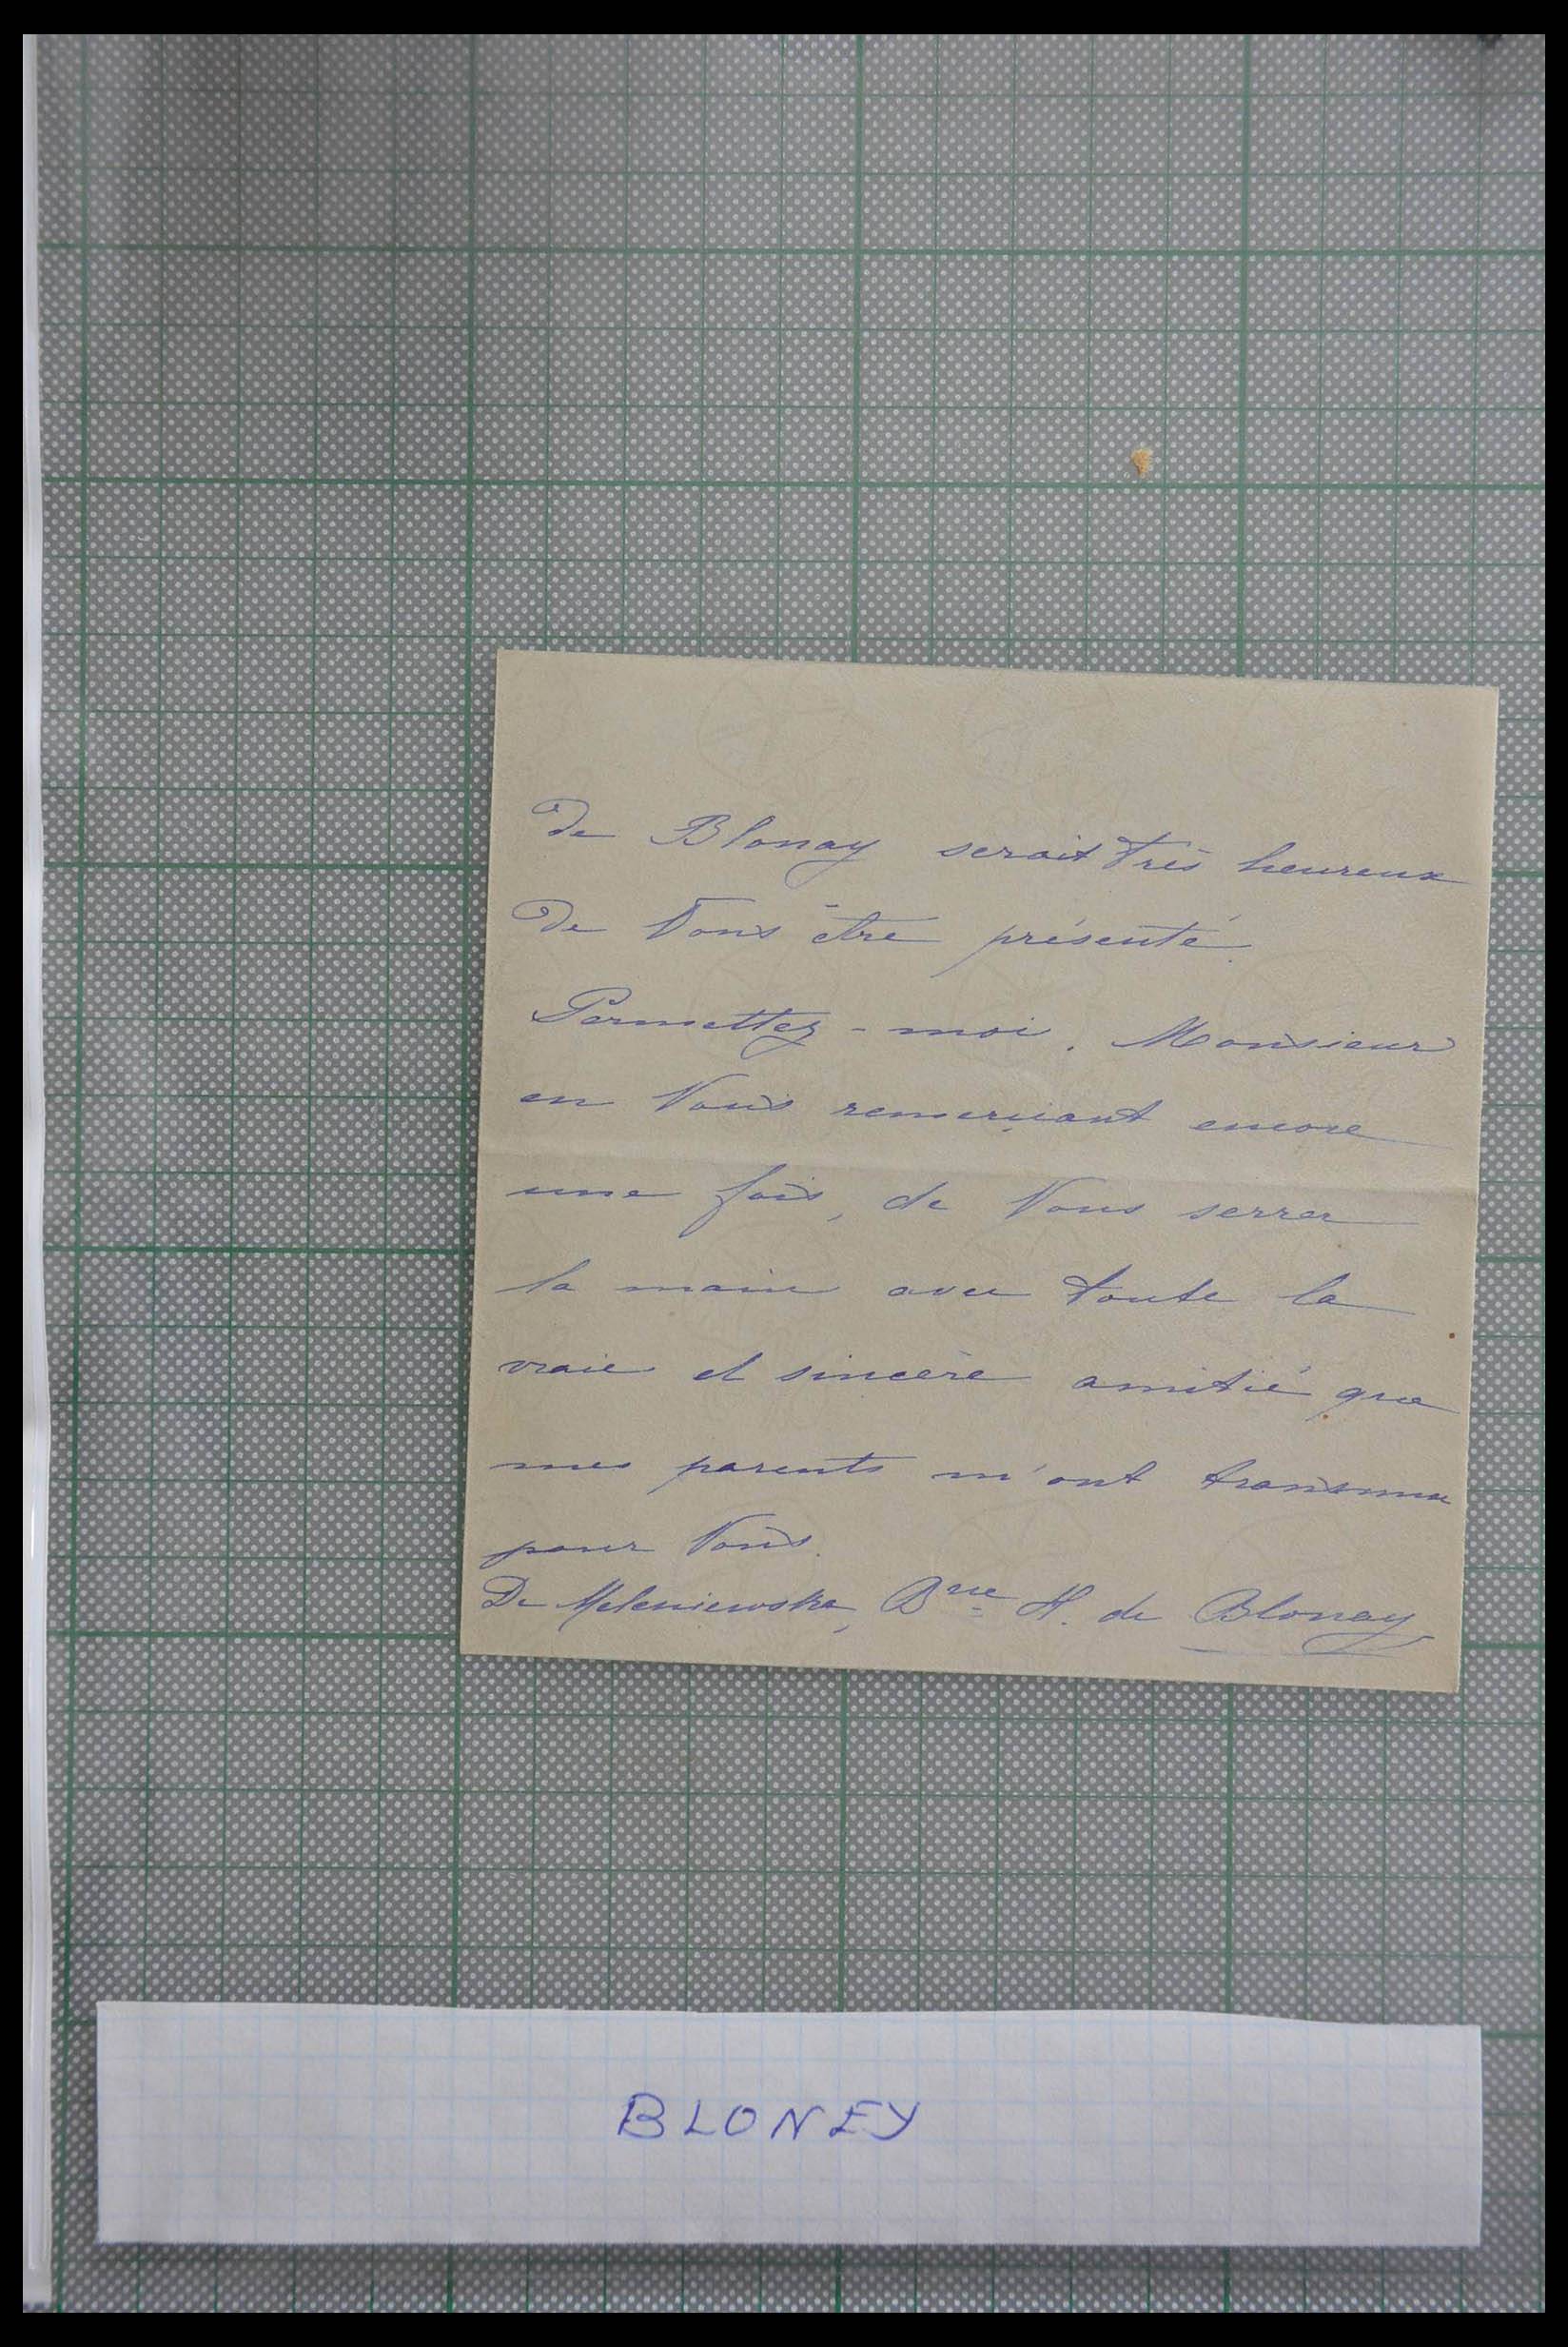 de Blonay serait très heureux
de Vous être présenté.
Permettez-moi, Monsieur
en Vous remerciant encore
une fois, de Vous serrer
la main avec toute la
vraie et sincère amitié que
mes parents m'ont transmise
pour Vous.
De Meleniewska, Bne H. de Blonay
BLONEY